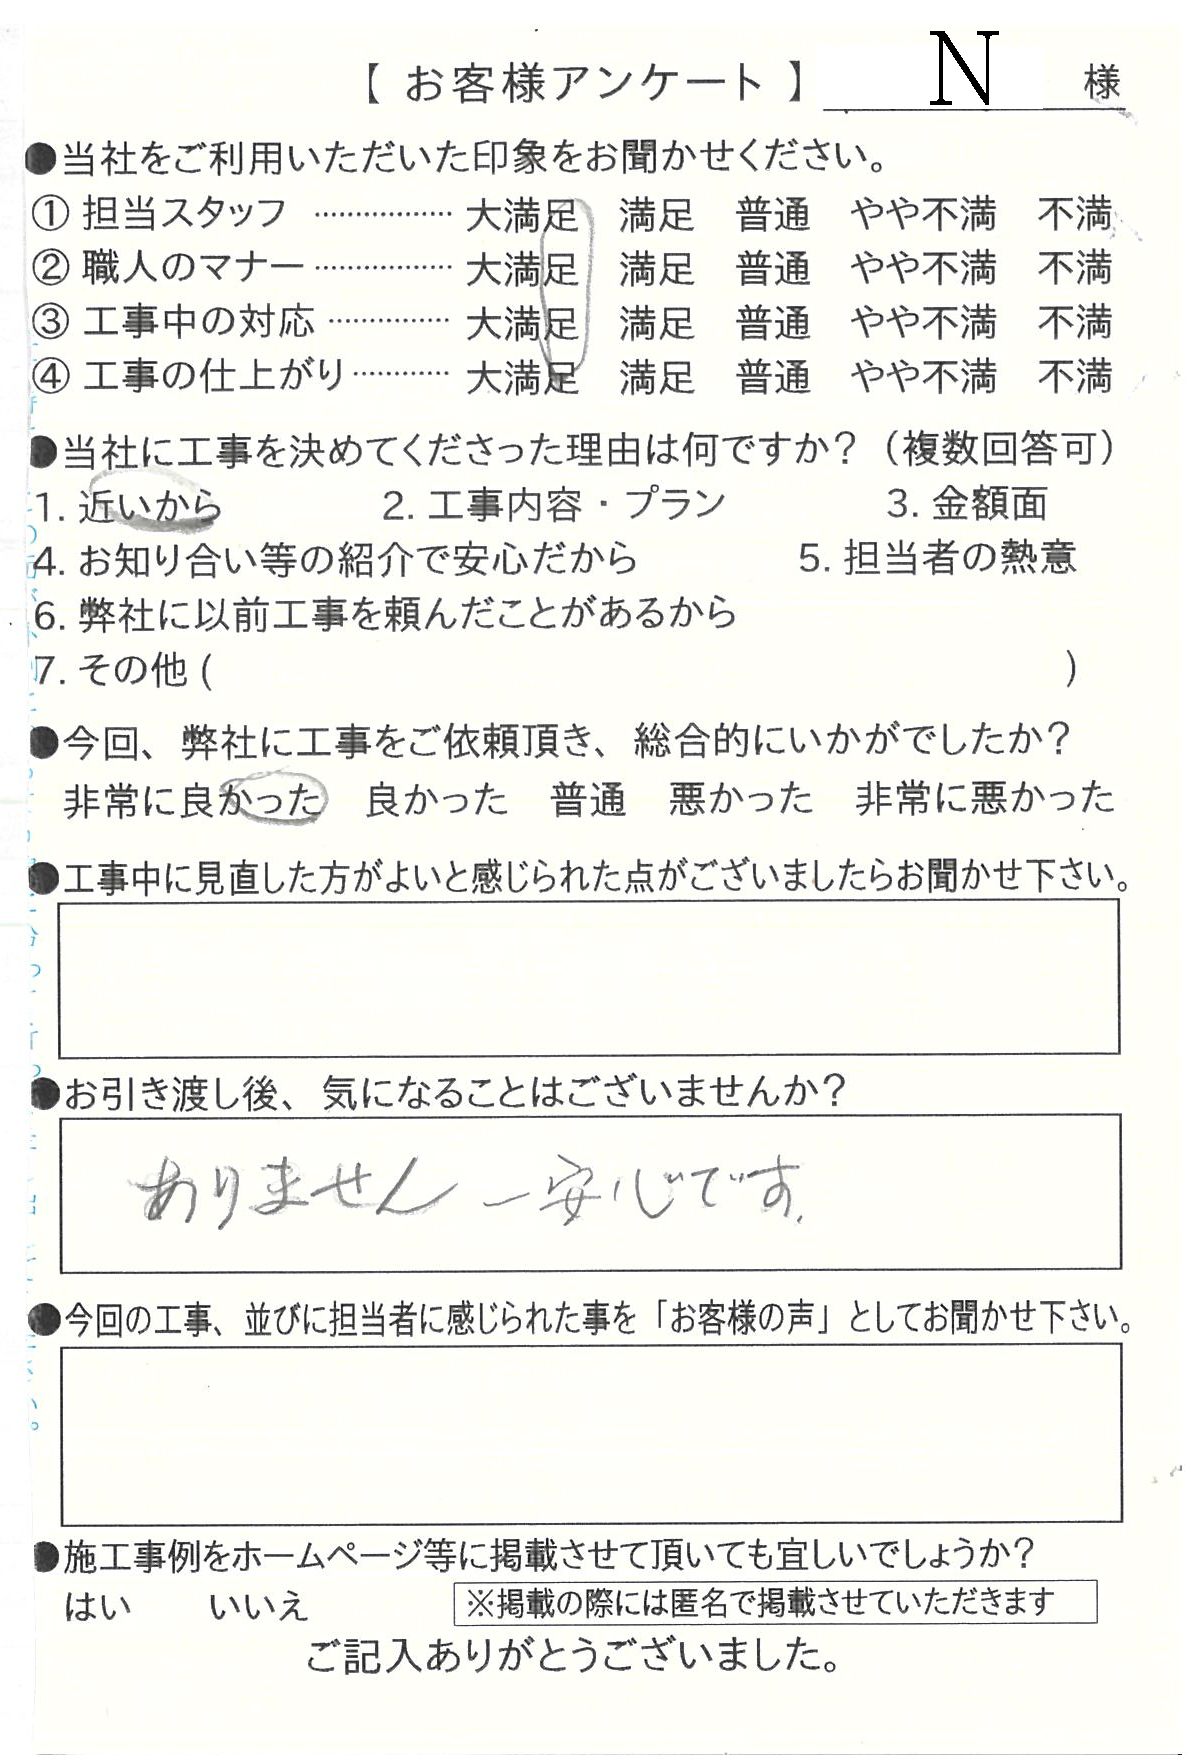 【 お客様アンケート 】 N 様
●当社をご利用いただいた印象をお聞かせください。
① 担当スタッフ ……………… 大満足 満足 普通 やや不満 不満
② 職人のマナー ……………… 大満足 満足 普通 やや不満 不満
③ 工事中の対応 …………… 大満足 満足 普通 やや不満 不満
④ 工事の仕上がり ………… 大満足 満足 普通 やや不満 不満
●当社に工事を決めてくださった理由は何ですか？（複数回答可）
1. 近いから 2. 工事内容・プラン 3. 金額面
4. お知り合い等の紹介で安心だから 5. 担当者の熱意
6. 弊社に以前工事を頼んだことがあるから
7. その他 ( )
●今回、弊社に工事をご依頼頂き、総合的にいかがでしたか？
非常に良かった 良かった 普通 悪かった 非常に悪かった
●工事中に見直した方がよいと感じられた点がございましたらお聞かせ下さい。
●お引き渡し後、気になることはございませんか？
ありません 一安心です.
●今回の工事、並びに担当者に感じられた事を「お客様の声」としてお聞かせ下さい。
●施工事例をホームページ等に掲載させて頂いても宜しいでしょうか？
はい いいえ ※掲載の際には匿名で掲載させていただきます
ご記入ありがとうございました。